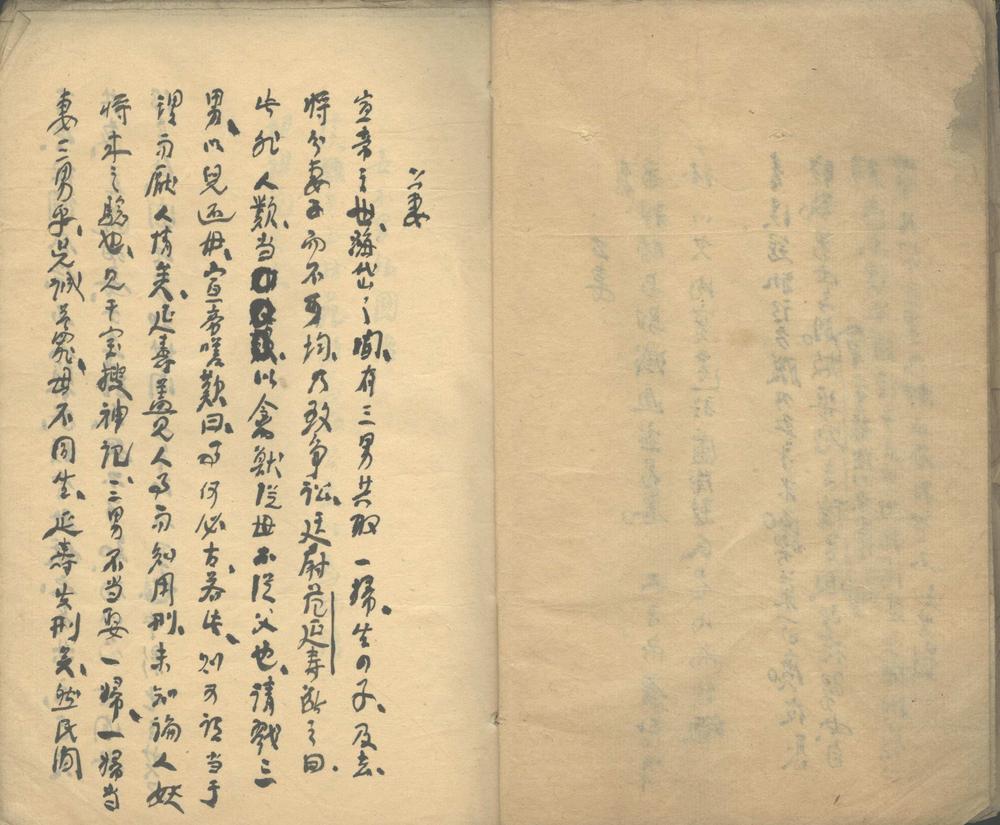 公妻
宣帝之世、海岱之間、有三男共取一婦、生四子、及去、
將分妻子而不可均、乃致爭訟、廷尉范延壽斷之曰、
此非人類、當以禽獸從母不從父也、請戮三
男、以兒还母、宣帝嗟歎曰、事何必古、若此、則可謂当于
理而厭人情矣、延壽蓋見人事而知用刑、未知論人妖
將來之驗也、見干宝搜神記、三男不当娶一婦、一婦当
妻三男乎、誠罪、母不同坐、延壽失刑矣、然民間